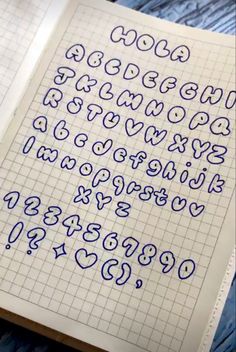 HOLA
ABCDEFGHI
JKLMNOPQ
RSTUVWXYZ
abcdefghijk
lmnopqrstuv
XYZ
1234567890
!?✦♡(),